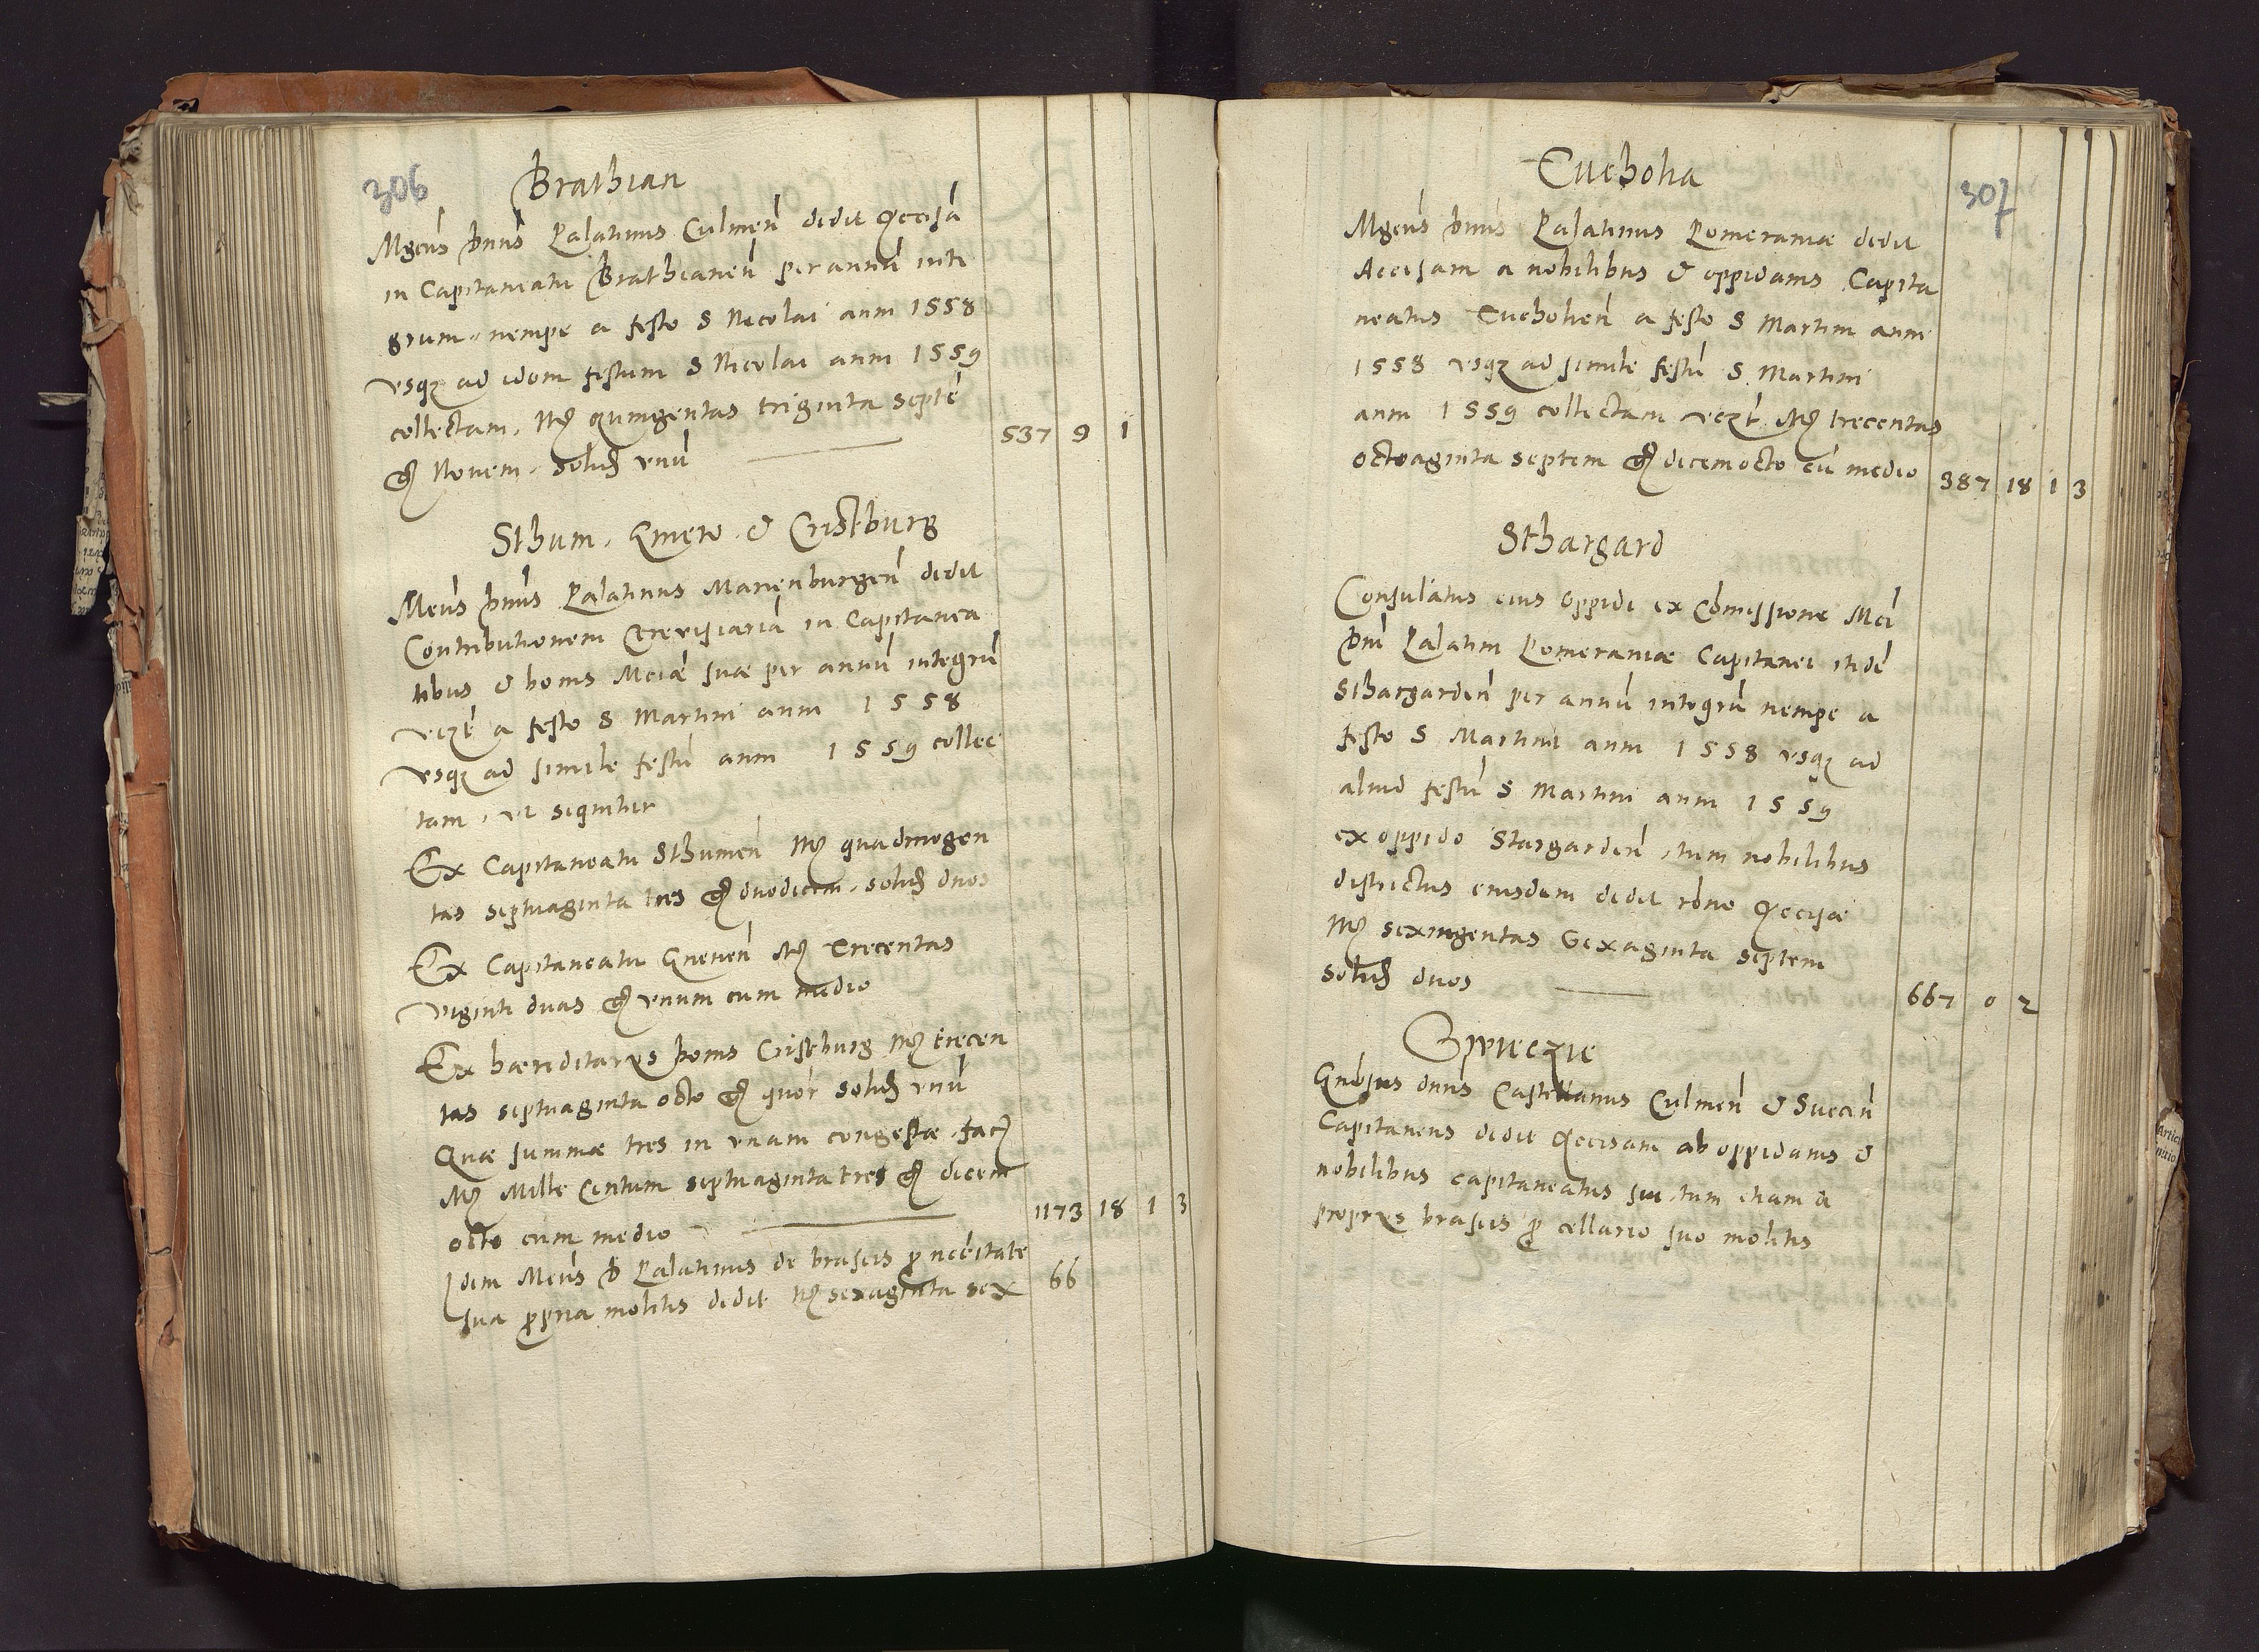 306
Brathian
Mgcus Dnus Palatinus Culmen dedit Accisã
in Capitaneatu Brathianeñ per annũ inte
grum, nempe a festo S Nicolai anni 1558
vsqz ad idem festum S Nicolai anni 1559
collectam, Mr̃ quingentas triginta septẽ
gr̃ Novem, solid vnũ 537 9 1
Sthum, Gmew, & Cristburg
Mcus Dnus Palatinus Marienburgeñ dedit
Contributionem Cerevisiariã in Capitanea
tibus & bonis Mciæ suæ per annũ integrũ
vczt a festo S Martini anni 1558
vsqz ad simile festũ anni 1559 collec
tam, vt sequitur
Ex Capitaneatu Sthumeñ Mr̃ quadringen
tas septuaginta tres gr̃ duodecim, solid duos
Ex Capitaneatu Gneueñ Mr̃ Trecentas
viginti duas gr̃ vnum cum medio
Ex hæreditarys bonis Cristburg Mr̃ trecen
tas septuaginta octo gr̃ quor solid vnũ
Quæ summæ tres in vnam congestæ, faciũt
Mr̃ Mille Centum septuaginta tres gr̃ decem
octo cum medio 1173 18 1 3
Idem Mcus D Palatinus de braseis p necitate
sua ppria molitis dedit Mr̃ sexaginta sex 66
307
Tucholia
Mgcus Dnus Palatinus Pomeraniæ dedit
Accisam a nobilibus & oppidanis Capita
neatus Tucholieñ a festo S Martini anni
1558 vsqz ad simile festũ S. Martini
anni 1559 collectam vczt Mr̃ trecentas
octoaginta septem gr̃ decemocto cũ medio 387 18 1 3
Sthargard
Consulatus eius oppidi ex Cõmissione Mci
Dni Palatini Pomeraniæ Capitanei itidẽ
Sthargardeñ per annũ integrũ nempe a
festo S Martini anni 1558 vsqz ad
aliud festũ S Martini anni 1559
ex oppido Stargardeñ, tum nobilibus
districtus eiusdem dedit rõne Accisæ
Mr̃ sexingentas Sexaginta septem
solid duos 667 0 2
Swieczie
Gnõsus dnus Castellanus Culmeñ & Sueceñ
Capitaneus dedit Accisam ab oppidanis &
nobilibus capitaneatus sui, tum etiam a
proprys braseis p cellario suo molitis